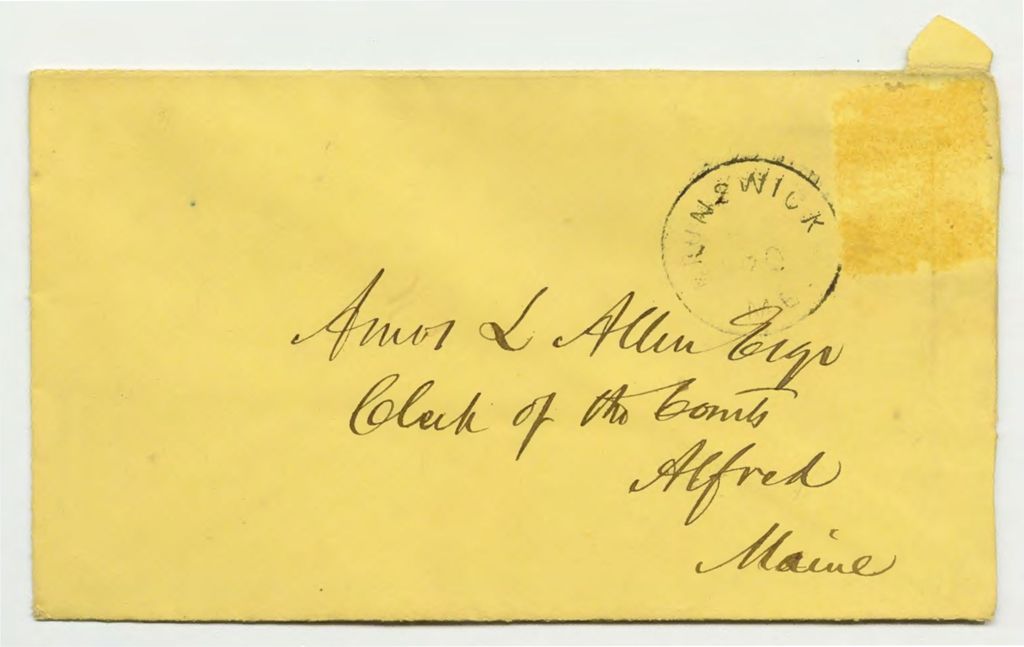 BRUNSWICK
ME
Amos L Allen Esqr
Clerk of the Courts
Alfred
Maine